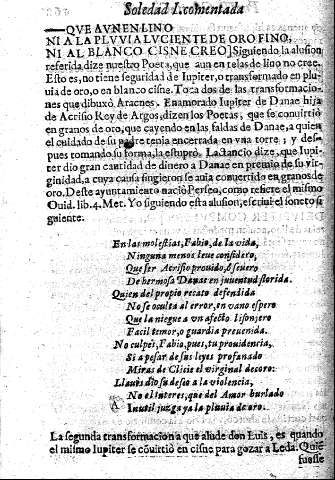 Soledad I. comentada
QVE AVN EN LINO
NI A LA PLVVIA LVCIENTE DE ORO FINO,
NI AL BLANCO CISNE CREO] Siguiendo la alusion
referida dize nuestro Poeta, que aun en telas de lino no cree.
Esto es, no tiene seguridad de Iupiter, o transformado en plu
uia de oro, o en blanco cisne. Toca dos de las transformacio-
nes que dibuxò Aracnes. Enamorado Iupiter de Danae hija
de Acrisio Rey de Argos, dizen los Poetas, que se conuirtiò
en granos de oro, que cayendo en las faldas de Danae, a quien
el cuidado de su padre tenia encerrada en vna torre; y des-
pues tomando su forma, la estuprò. Lactancio dize, que Iupi-
ter dio gran cantidad de dinero a Danae en premio de su vir-
ginidad, a cuya causa fingieron se auia conuertido en granos
de oro. Deste ayuntamiento naciò Perseo, como refiere el mismo
Ouid. lib. 4. Met. Yo siguiendo esta alusion, escriui el soneto si
guiente.
En las molestias, Fabio, de la vida,
Ninguna menos leue considero,
Que ser Acrisio prouido, ò seuero
De hermosa Danae en juuentud florida.
Quien del propio recato defendida
No se oculta al error, en vano espero
Que la niegue a vn afecto lisonjero
Facil temor, o guardia preuenida.
No culpes, Fabio, pues, tu prouidencia,
Si a pesar de sus leyes profanado
Miras de Clicie el virginal decoro:
Llaues dio su deseo a la violencia,
No el interes, que del Amor burlado
Inutil juzga ya la pluuia de oro.
La segunda transformacion a que alude don Luis, es quando
el mismo Iupiter se cõuirtiò en cisne para gozar a Leda. Quie
fuesse